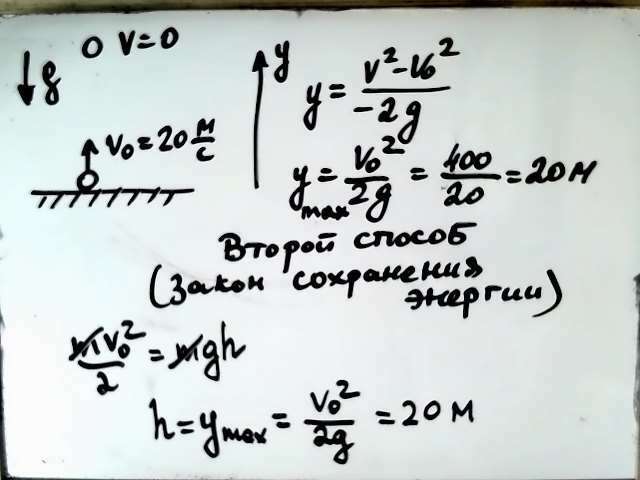 V=0
g
V₀=20 м/с
y
y = (V²-V₀²)/(-2g)
y max = V₀²/2g = 400/20 = 20 м
Второй способ
(Закон сохранения
энергии)
mV₀²/2 = mgh
h = y max = V₀²/2g = 20 м